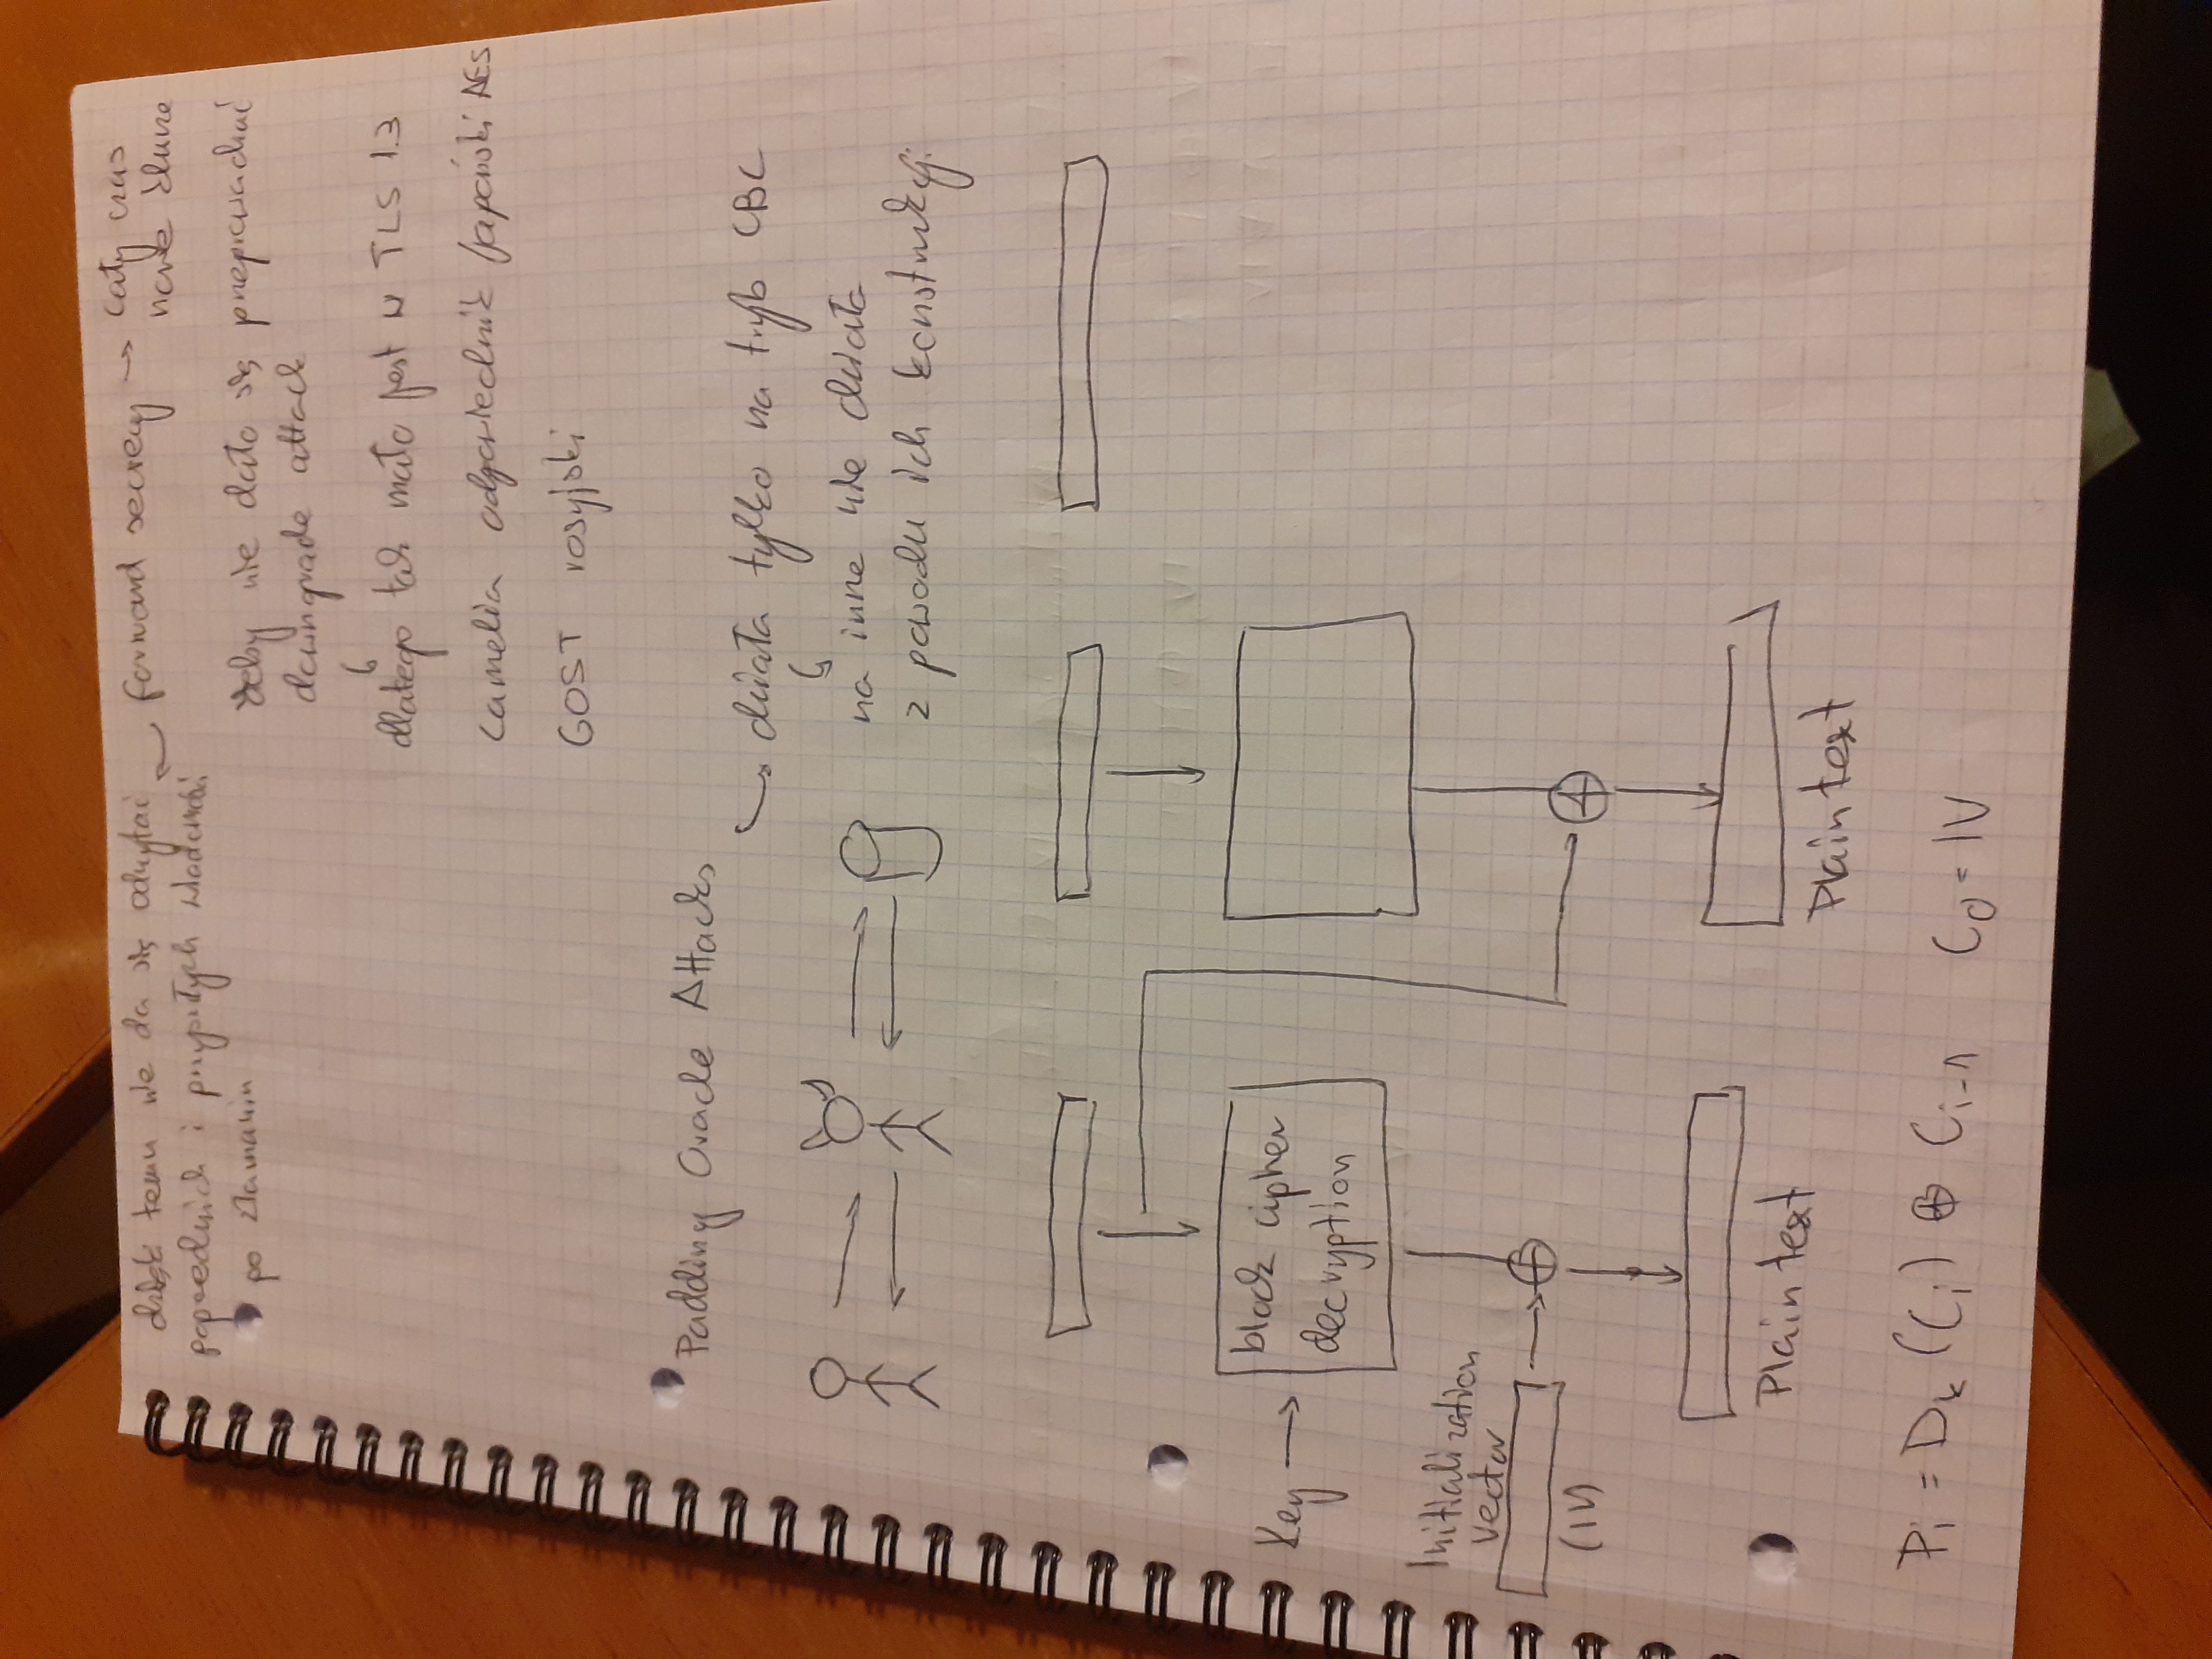 dzięki temu nie da się odczytać
poprzednich i przyszłych wiadomości
po złamaniu
forward secrecy → cały czas
nowe klucze
żeby nie dało się przeprowadzić
downgrade attack
dlatego tak mało jest w TLS 1.3
Camelia odpowiednik / japoński AES
GOST rosyjski
Padding Oracle Attacks
działa tylko na tryb CBC
na inne nie działa
z powodu ich konstrukcji
Key →
block cipher
decryption
Initialization
Vector
(IV)
Plain text
Plain text
Pi = Dk (Ci) ⊕ Ci-1 C0 = IV